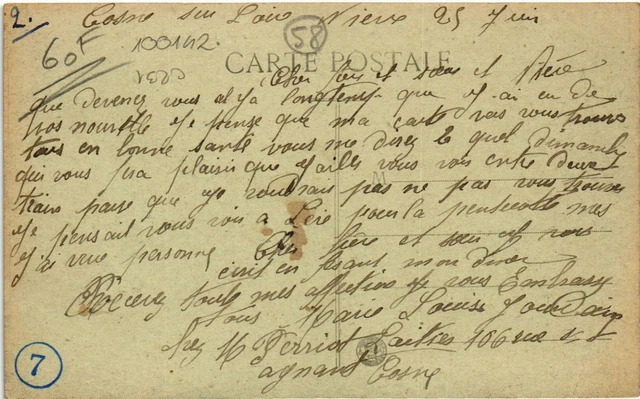 2. Cosne sur Loire Nievre 25 Juin
60F 133142. 58
CARTE POSTALE
Cher frere et soeur et
que devenez vous il y a longtemps que j ai eu de
vos nouvelle je pense que ma carte vas vous trouve
tous en bonne santé vous me direz le quel Dimanche
qui vous fera plaisir que j ailles vous voir entre deux
train parce que je voudrais pas ne pas vous trouver
je pensait vous voir a Léré pour la pentecote mes
j ai vue personne Cher frère et soeur je vous
écrit en fesant mon diner
Recevez toute mes affection je vous Embrasse
tous Marie Louise Jourdain
chez M Perriot Laitier 106 rue
agnan Cosne
7